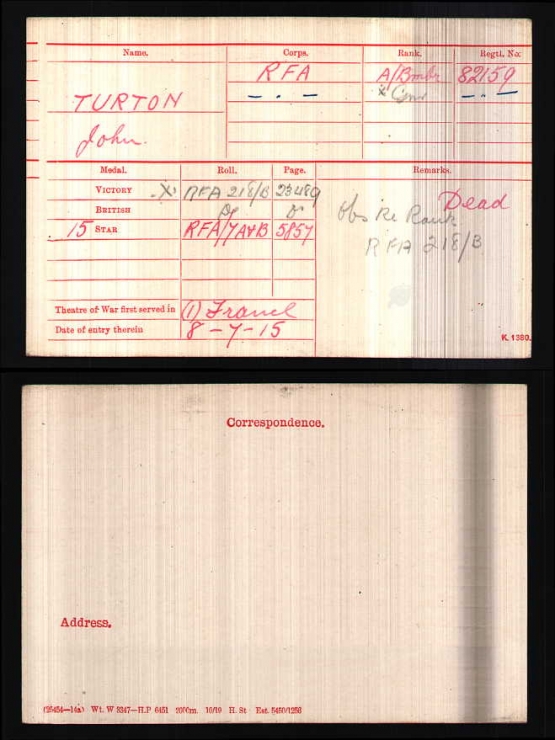 Name. Corps. Rank. Regtl. No:
RFA A/Bmbr 82159
TURTON - . - x Gnr - . -
John.
Medal. Roll. Page. Remarks.
VICTORY X RFA 218/B 23489 Dead
BRITISH Do Do Obs Re Rank
15 STAR RFA/7A+B 5857 RFA 218/B
Theatre of War first served in (1) France
Date of entry therein 8-7-15
K. 1380.
Correspondence.
Address.
Wt. W 3347—H.P 6451 200m. 16/19 H. St Est. 5400/1256